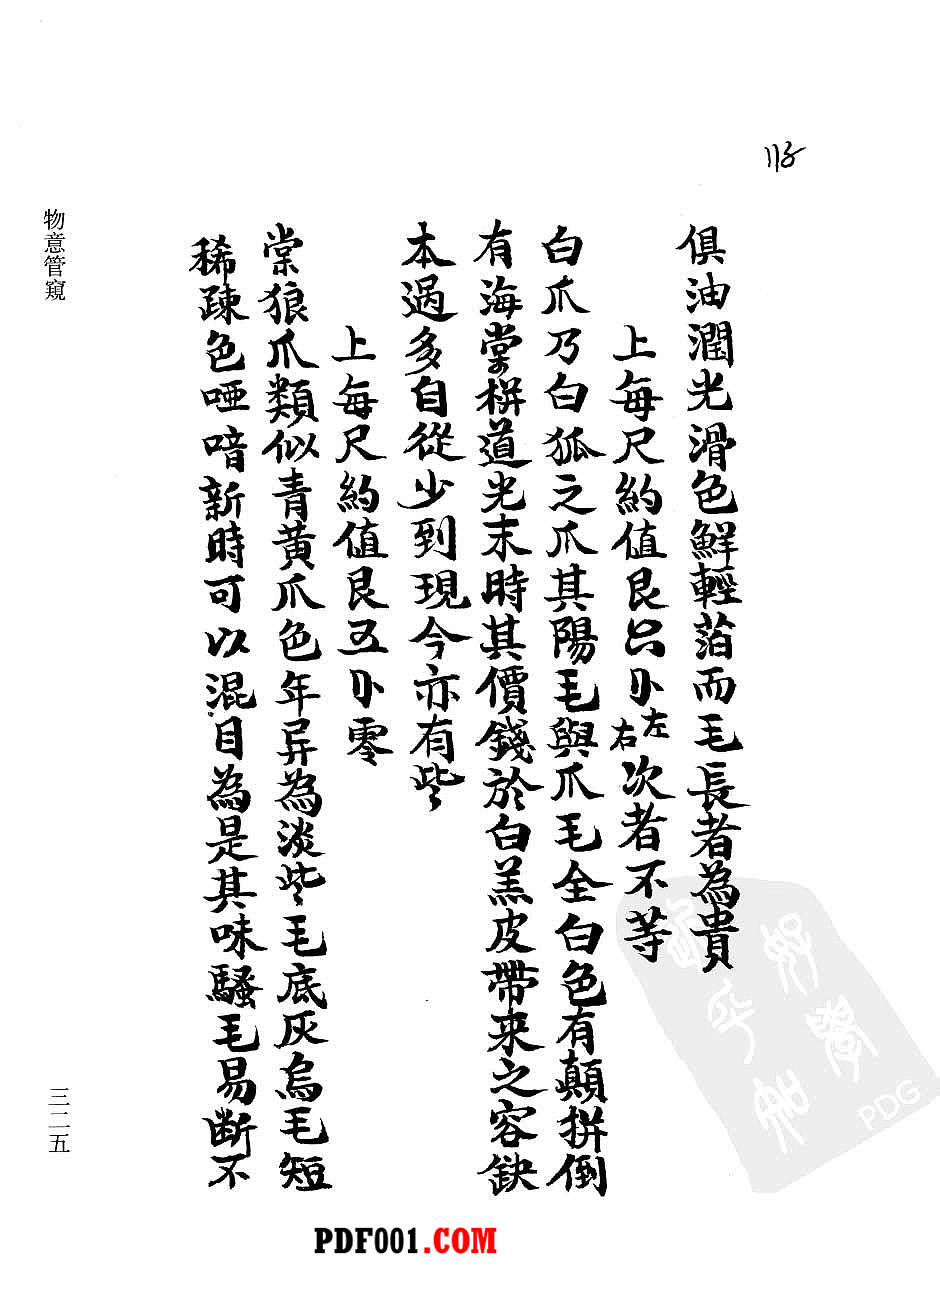 俱油潤光滑色鮮輕萡而毛長者為貴
上每尺約值艮六卩左右次者不等
白爪乃白狐之爪其陽毛與爪毛全白色有顛拼倒
有海棠栟道光末時其價錢於白羔皮帶来之容鈌
本過多自從少到現今亦有些
上每尺約值艮五卩零
棠狼爪類似青黃爪色年异為淡些毛底灰烏毛短
稀踈色哑喑新時可以混目為是其味騷毛易斷不
物意管窺
三二五
PDG
PDF001.COM